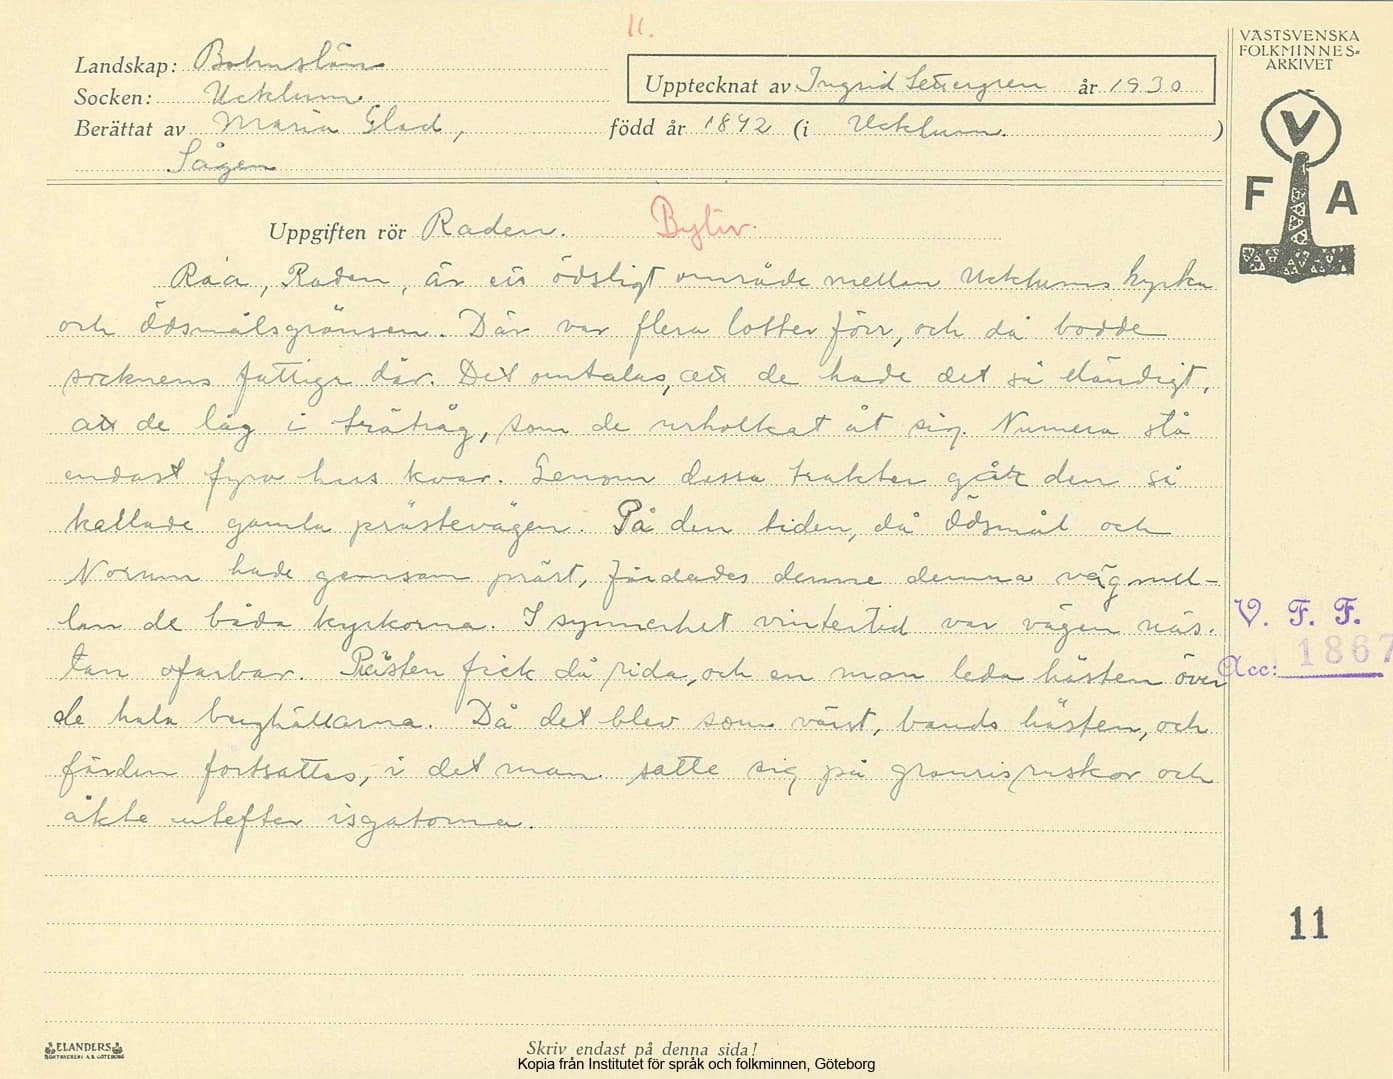 11.
VÄSTSVENSKA
FOLKMINNES-
ARKIVET
Landskap: Bohuslän
Socken: Ucklum
Upptecknat av Ingrid Settergren år 1930
Berättat av Maria Glad, född år 1892 (i Ucklum.)
Sågen
V
F A
Uppgiften rör Raden. Byliv.
Råa, Raden, är ett ödsligt område mellan Ucklums kyrka
och Ödsmålsgränsen. Där var flera lotter förr, och då bodde
socknens fattiga där. Det omtalas, att de hade det så eländigt,
att de låg i trätråg, som de urholkat åt sig. Numera stå
endast fyra hus kvar. Genom dessa trakter gått den så
kallade gamla prästevägen. På den tiden, då Ödsmål och
Norum hade gemsam präst, färdades denne denna väg mel-
lan de båda kyrkorna. I synnerhet vintertid var vägen näs-
tan ofarbar. Prästen fick då rida, och en man leda hästen över
de hala berghällarna. Då det blev som värst, bands hästen, och
färden fortsattes, i det man satte sig på granrisruskor och
åkte utefter isgatorna.
V. F. F.
Acc: 1867
11
ELANDERS
BOKTRYCKERI A.B. GÖTEBORG
Skriv endast på denna sida!
Kopia från Institutet för språk och folkminnen, Göteborg